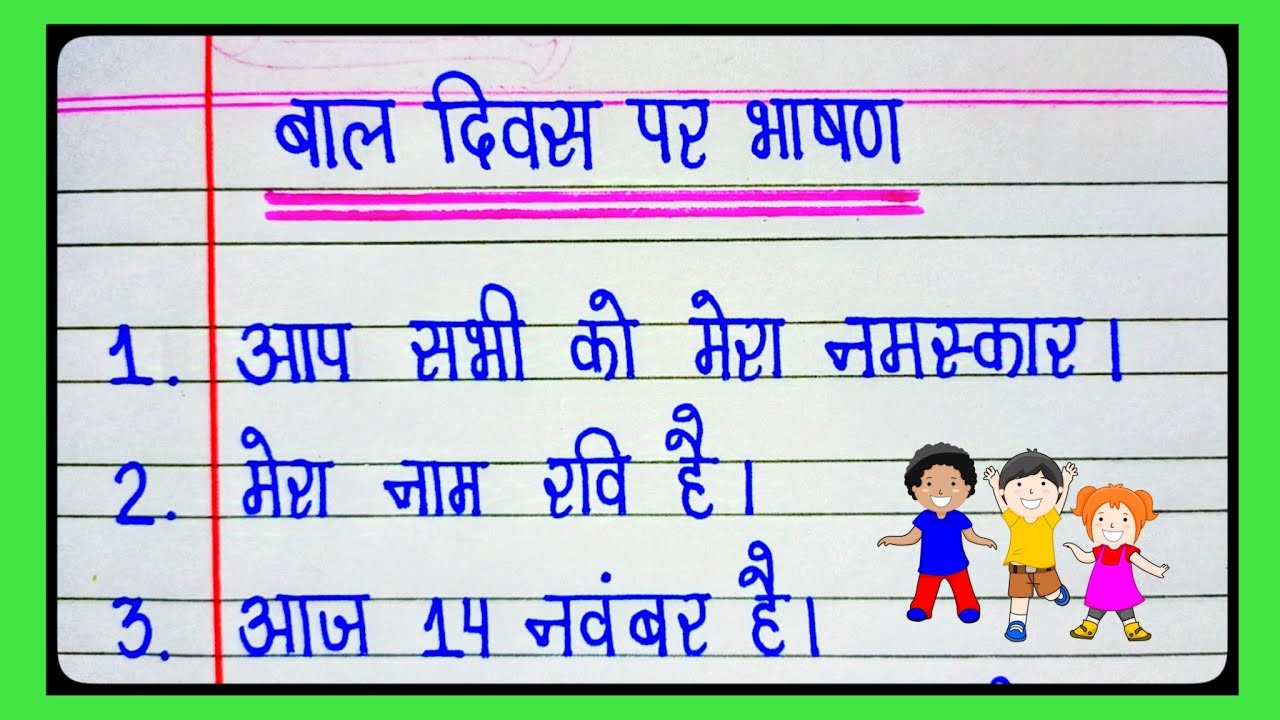 बाल दिवस पर भाषण
1. आप सभी को मेरा नमस्कार।
2. मेरा नाम रवि है।
3. आज 14 नवंबर है।